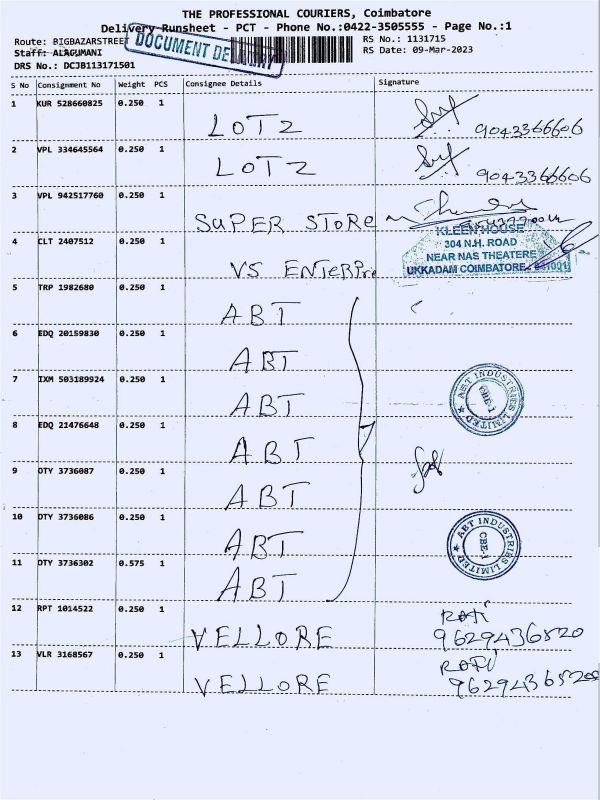 THE PROFESSIONAL COURIERS, Coimbatore
Delivery Runsheet - PCT - Phone No.:0422-3505555 - Page No.:1
Route: BIGBAZARSTREET
RS No.: 1131715
Staff: ALAGUMANI
RS Date: 09-Mar-2023
DRS No.: DCJB113171501
DOCUMENT DELIVERY
S No Consignment No Weight PCS Consignee Details Signature
1 KUR 528660825 0.250 1 LOTZ 9043366606
2 VPL 334645564 0.250 1 LOTZ 9043366606
3 VPL 942517760 0.250 1 SUPER STORE
KLEEN HOUSE
304 N.H. ROAD
NEAR NAS THEATERE
UKKADAM COIMBATORE - 641001
4 CLT 2407512 0.250 1 VS ENTERPri
5 TRP 1982680 0.250 1 ABT
6 EDQ 20159830 0.250 1 ABT
7 IXM 503189924 0.250 1 ABT
ABT INDUSTRIES LIMITED
CBE-1
8 EDQ 22476648 0.250 1 ABT
9 OTY 3736087 0.250 1 ABT
10 OTY 3736086 0.250 1 ABT
ABT INDUSTRIES LIMITED
CBE-1
11 OTY 3736302 0.575 1 ABT
12 RPT 1014522 0.250 1 VELLORE 9629436520
13 VLR 3168567 0.250 1 VELLORE